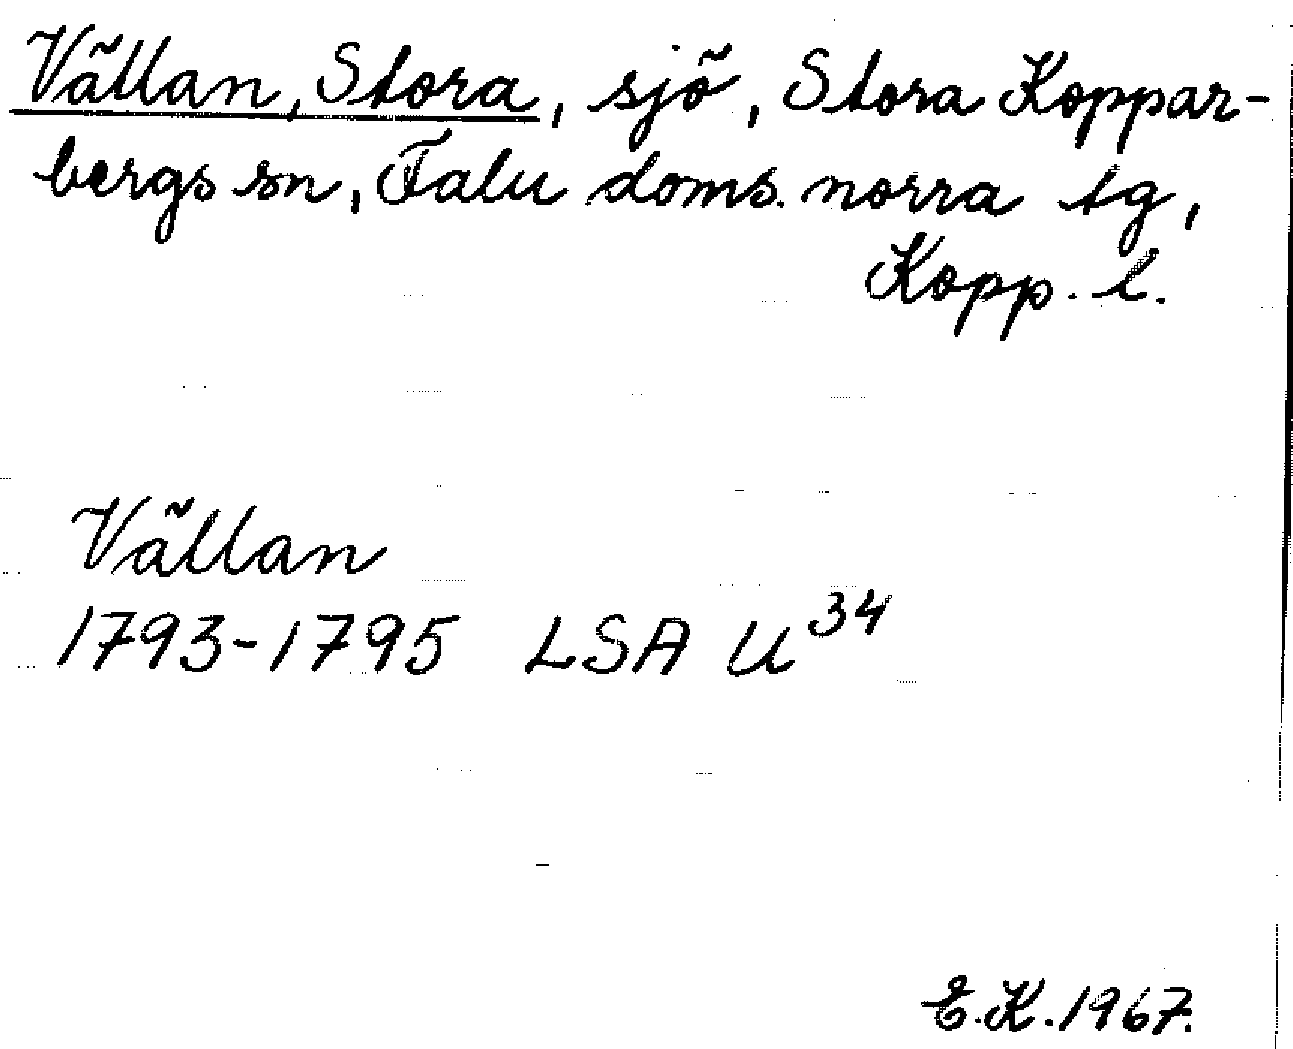 Vällan, Stora, sjö, Stora Koppar-
bergs sn, Falu doms. norra tg,
Kopp. l.
Vällan
1793-1795 LSA U³⁴
E.K. 1967.